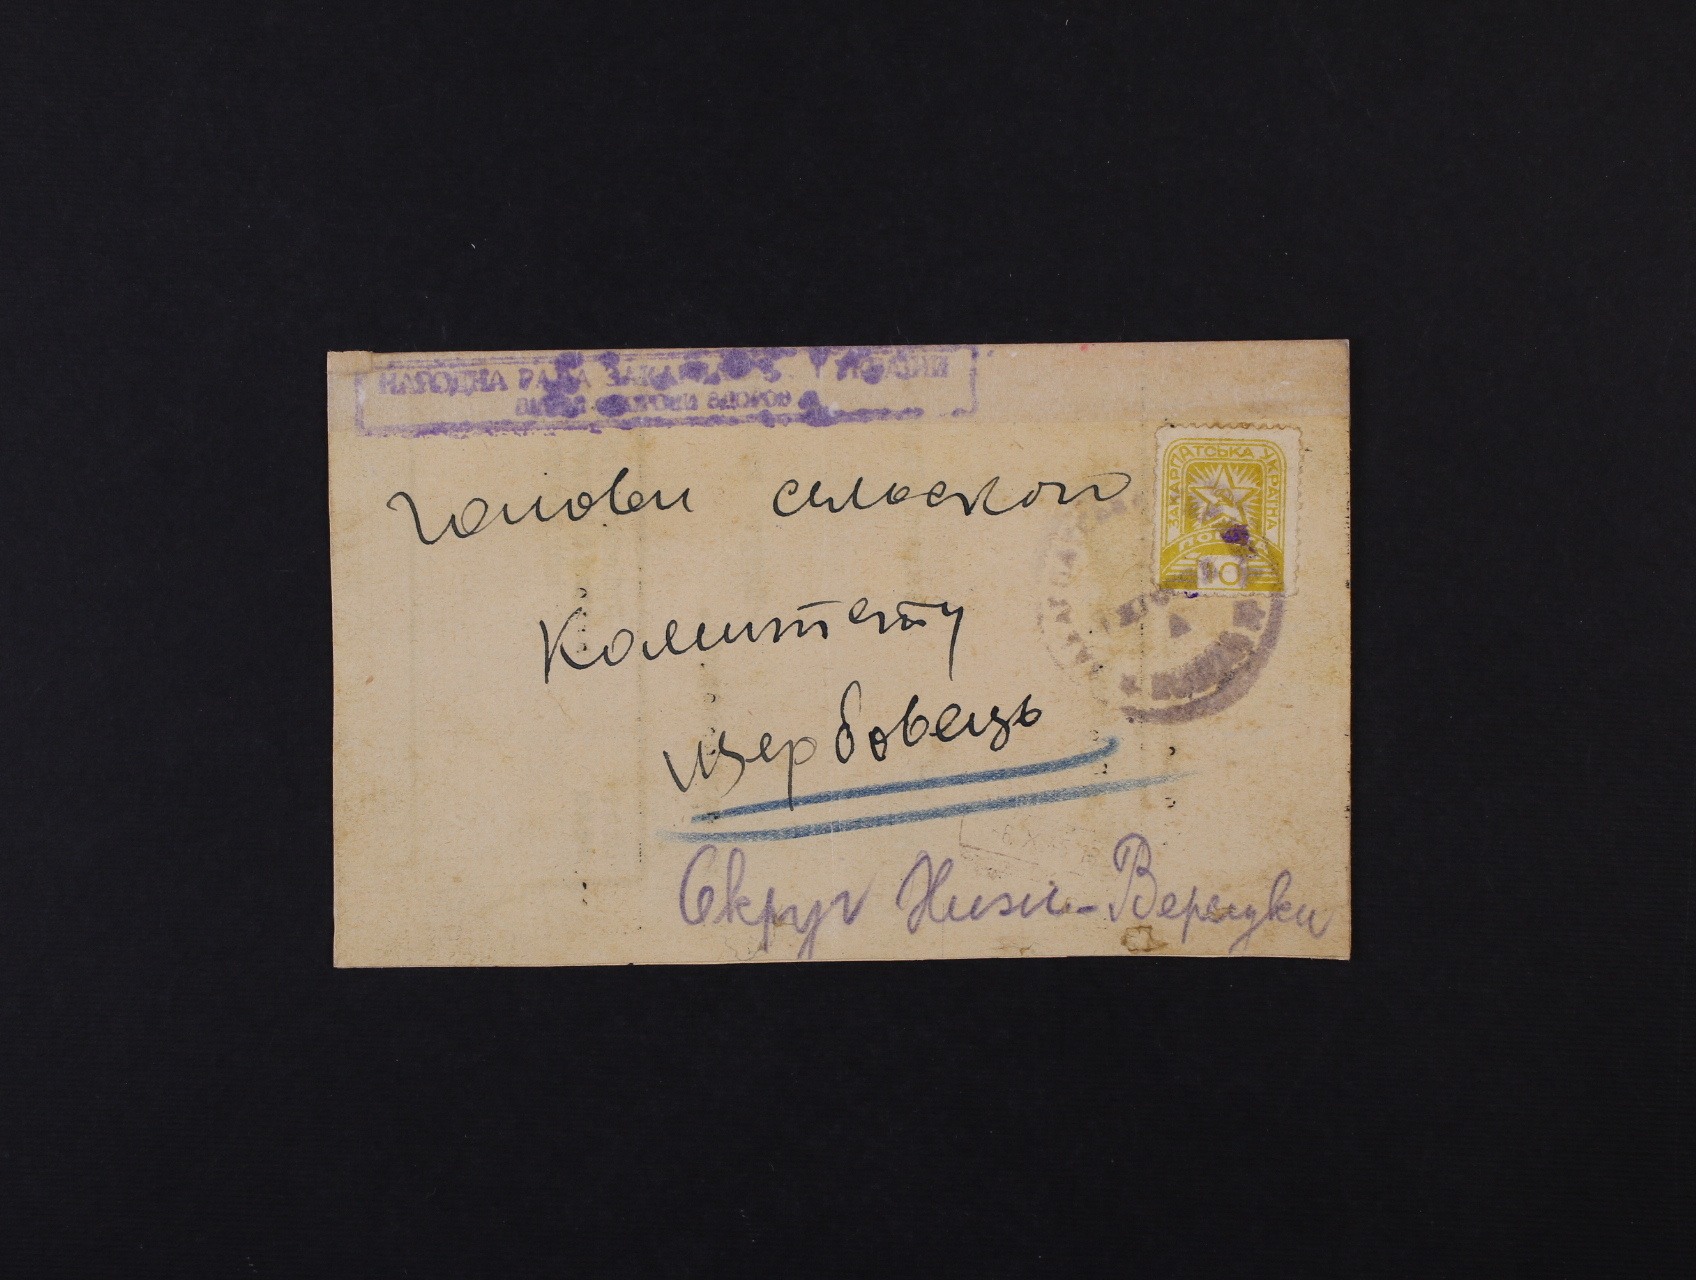 НАРОДНА РАДА
ОХОРОНИ ЗДОРОВ
ЗАКАРПАТСЬКА УКРАЇНА
ПОШТА
10
Голови сельской
Комитету
Щербовець
Округ Нижн-Верецки